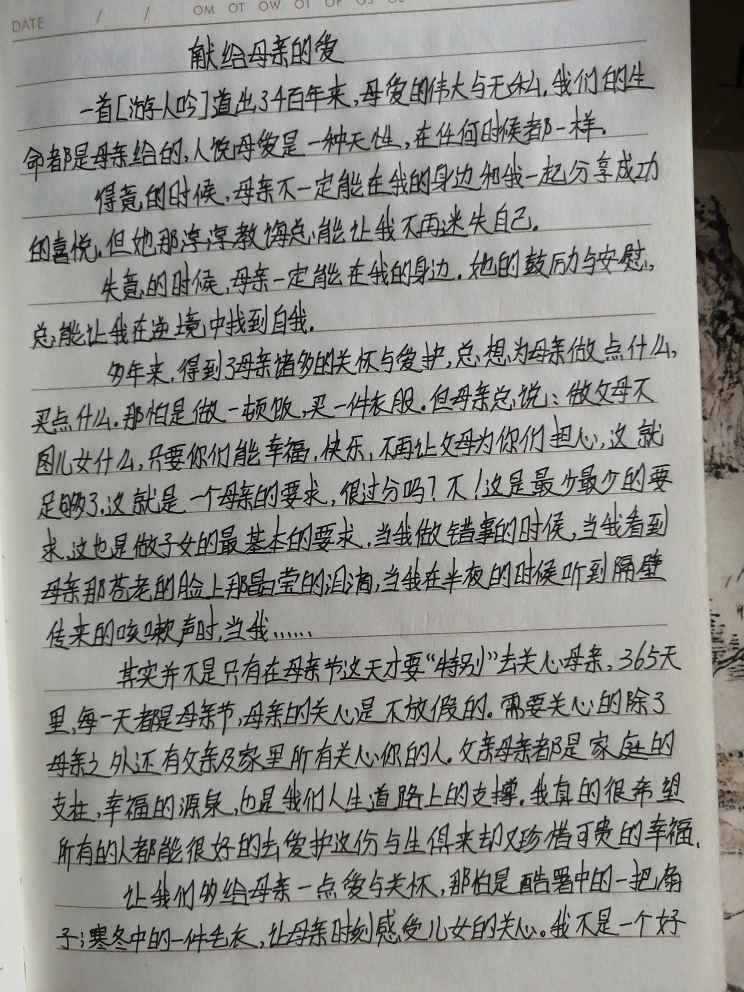 DATE / /
献给母亲的爱
一首[游子人吟]道出了千百年来,母爱的伟大与无私,我们的生
命都是母亲给的,人说母爱是一种天性,在任何时候都一样。
得意的时候,母亲不一定能在我的身边和我一起分享成功
的喜悦,但她那淳淳教诲总能让我不再迷失自己。
失意的时候,母亲一定能在我的身边,她的鼓历与安慰,
总能让我在逆境中找到自我。
多年来,得到了母亲诸多的关怀与爱护,总想为母亲做点什么,
买点什么,那怕是做一顿饭,买一件衣服。但母亲总说:做父母不
图儿女什么,只要你们能幸福,快乐,不再让父母为你们担心,这就
足够了,这就是一个母亲的要求,很过分吗?不!这是最少最少的要
求,这也是做子女的最基本的要求,当我做错事的时候,当我看到
母亲那苍老的脸上那晶莹的泪滴,当我在半夜的时候听到隔壁
传来的咳嗽声时,当我……
其实并不是只有在母亲节这天才要“特别”去关心母亲,365天
里,每一天都是母亲节,母亲的关心是不放假的。需要关心的除了
母亲之外还有父亲及家里所有关心你的人。父亲母亲都是家庭的
支柱,幸福的源泉,也是我们人生道路上的支撑。我真的很希望
所有的人都能很好的去爱护这份与生俱来却又珍惜可贵的幸福,
让我们多给母亲一点爱与关怀,那怕是酷署中的一把扇
子;寒冬中的一件毛衣,让母亲时刻感受儿女的关心。我不是一个好